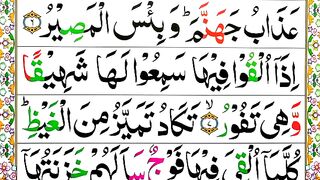 عَذَابُ جَهَنَّمَ ؕ وَ بِئْسَ الْمَصِيْرُ ﴿۶﴾
اِذَاۤ اُلْقُوْا فِيْهَا سَمِعُوْا لَهَا شَهِيْقًا
وَّهِىَ تَفُوْرُ ﴿۷﴾ تَكَادُ تَمَيَّزُ مِنَ الْغَيْظِ ؕ
كُلَّمَاۤ اُلْقِىَ فِيْهَا فَوْجٌ سَاَلَهُمْ خَزَنَتُهَاۤ